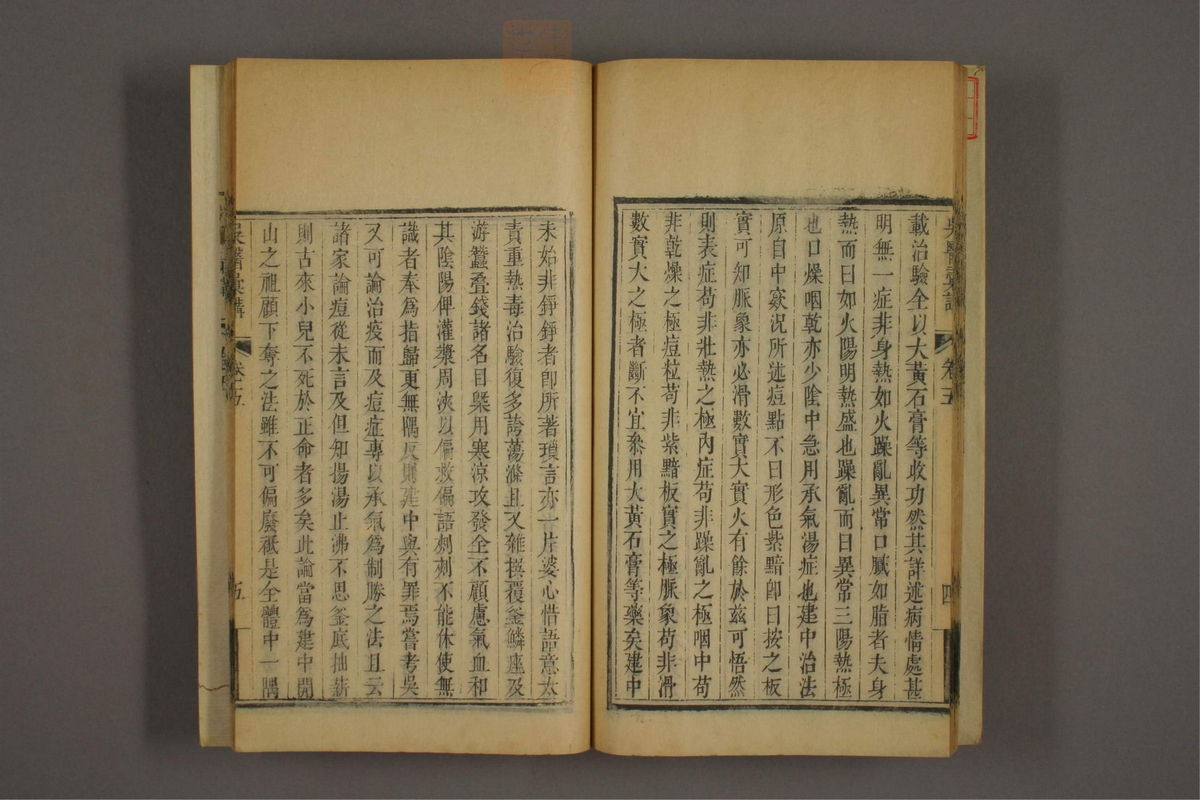 吳醫彙講 卷五 四
載治驗全以大黃石膏等收功然其詳述病情處甚
明無一症非身熱如火躁亂異常口膩如脂者夫身
熱而曰如火陽明熱盛也躁亂而曰異常三陽熱極
也口燥咽乾亦少陰中急用承氣湯症也建中治法
原自中窾況所述痘點不曰形色紫黯卽曰按之板
實可知脈象亦必滑數實大實火有餘於茲可悟然
則表症苟非壯熱之極內症苟非躁亂之極咽中苟
非乾燥之極痘粒苟非紫黯板實之極脈象苟非滑
數實大之極者斷不宜叅用大黃石膏等藥矣建中
未始非錚錚者卽所著瑣言亦一片婆心惜語意太
責重熱毒治驗復多誇蕩滌且又雜撰覆釜鱗座及
游蠶叠錢諸名目槩用寒涼攻發全不顧慮氣血和
其陰陽俾灌漿周浹以偏救偏語刺刺不能休使無
識者奉爲指歸更無隅反則建中與有罪焉嘗考吳
又可論治疫而及痘症專以承氣爲制勝之法且云
諸家論痘從未言及但知揚湯止沸不思釜底抽薪
則古來小兒不死於正命者多矣此論當爲建中開
山之祖顧下奪之法雖不可偏廢祇是全體中一隅
吳醫彙講 五